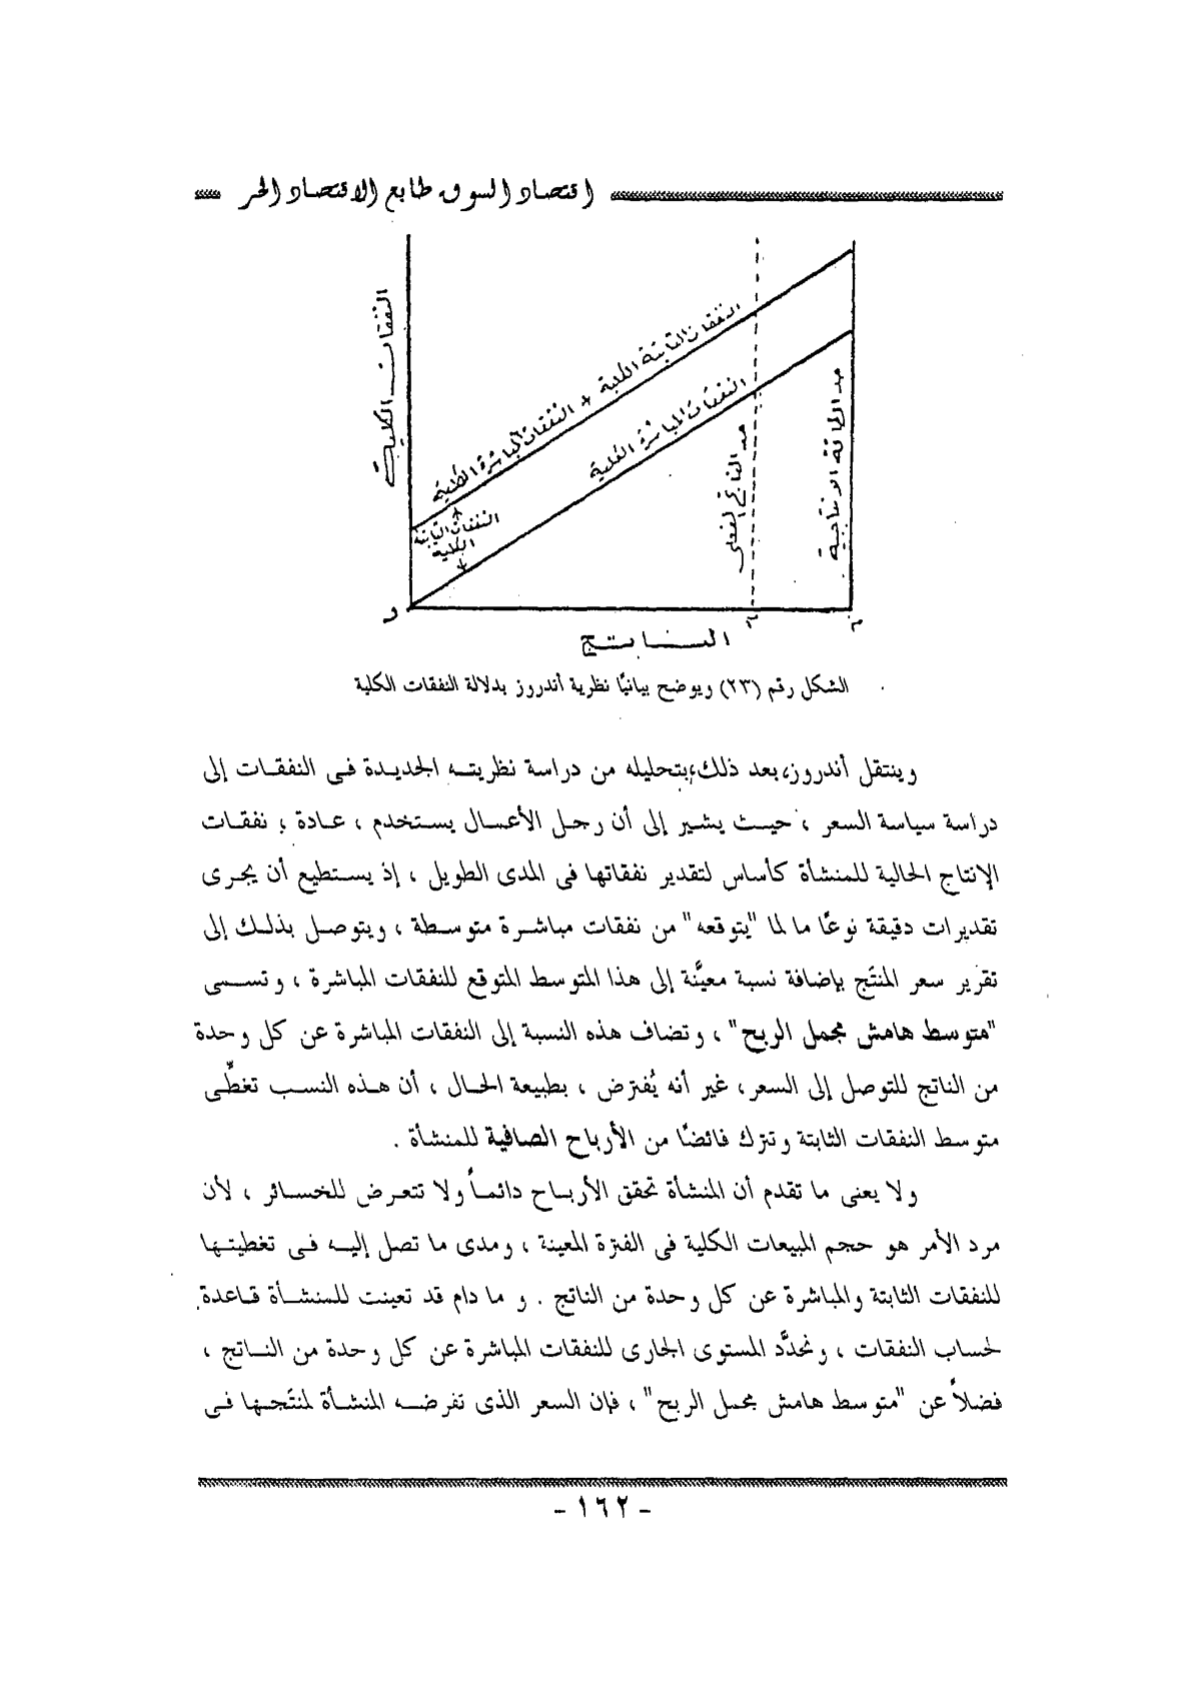 اقتصاد السوق طابع الاقتصاد الحر
النفقات الكلية
النفقات المباشرة الكلية + النفقات الثابتة الكلية
النفقات المباشرة الكلية
النفقات الثابتة
الكلية
حد الناتج الفعلى
حد الطاقة الإنتاجية
الناتج
الشكل رقم (٢٣) ويوضح بيانيًا نظرية أندروز بدلالة النفقات الكلية
وينتقل أندروز، بعد ذلك، بتحليله من دراسة نظريته الجديدة فى النفقات إلى
دراسة سياسة السعر ، حيث يشير إلى أن رجل الأعمال يستخدم ، عادة ؛ نفقات
الإنتاج الحالية للمنشأة كأساس لتقدير نفقاتها فى المدى الطويل ، إذ يستطيع أن يجرى
تقديرات دقيقة نوعًا ما لما "يتوقعه" من نفقات مباشرة متوسطة ، ويتوصل بذلك إلى
تقرير سعر المنتَج بإضافة نسبة معيَّنة إلى هذا المتوسط المتوقع للنفقات المباشرة ، وتسمى
"متوسط هامش مجمل الربح" ، وتضاف هذه النسبة إلى النفقات المباشرة عن كل وحدة
من الناتج للتوصل إلى السعر، غير أنه يُفترض ، بطبيعة الحال ، أن هذه النسب تغطِّى
متوسط النفقات الثابتة وتترك فائضًا من الأرباح الصافية للمنشأة .
ولا يعنى ما تقدم أن المنشأة تحقق الأرباح دائماً ولا تتعرض للخسائر ، لأن
مرد الأمر هو حجم المبيعات الكلية فى الفترة المعينة ، ومدى ما تصل إليه فى تغطيتها
للنفقات الثابتة والمباشرة عن كل وحدة من الناتج . و ما دام قد تعينت للمنشأة قاعدة
لحساب النفقات ، وتحدَّد المستوى الجارى للنفقات المباشرة عن كل وحدة من الناتج ،
فضلاً عن "متوسط هامش مجمل الربح" ، فإن السعر الذى تفرضه المنشأة لمنتَجها فى
- ١٦٢ -